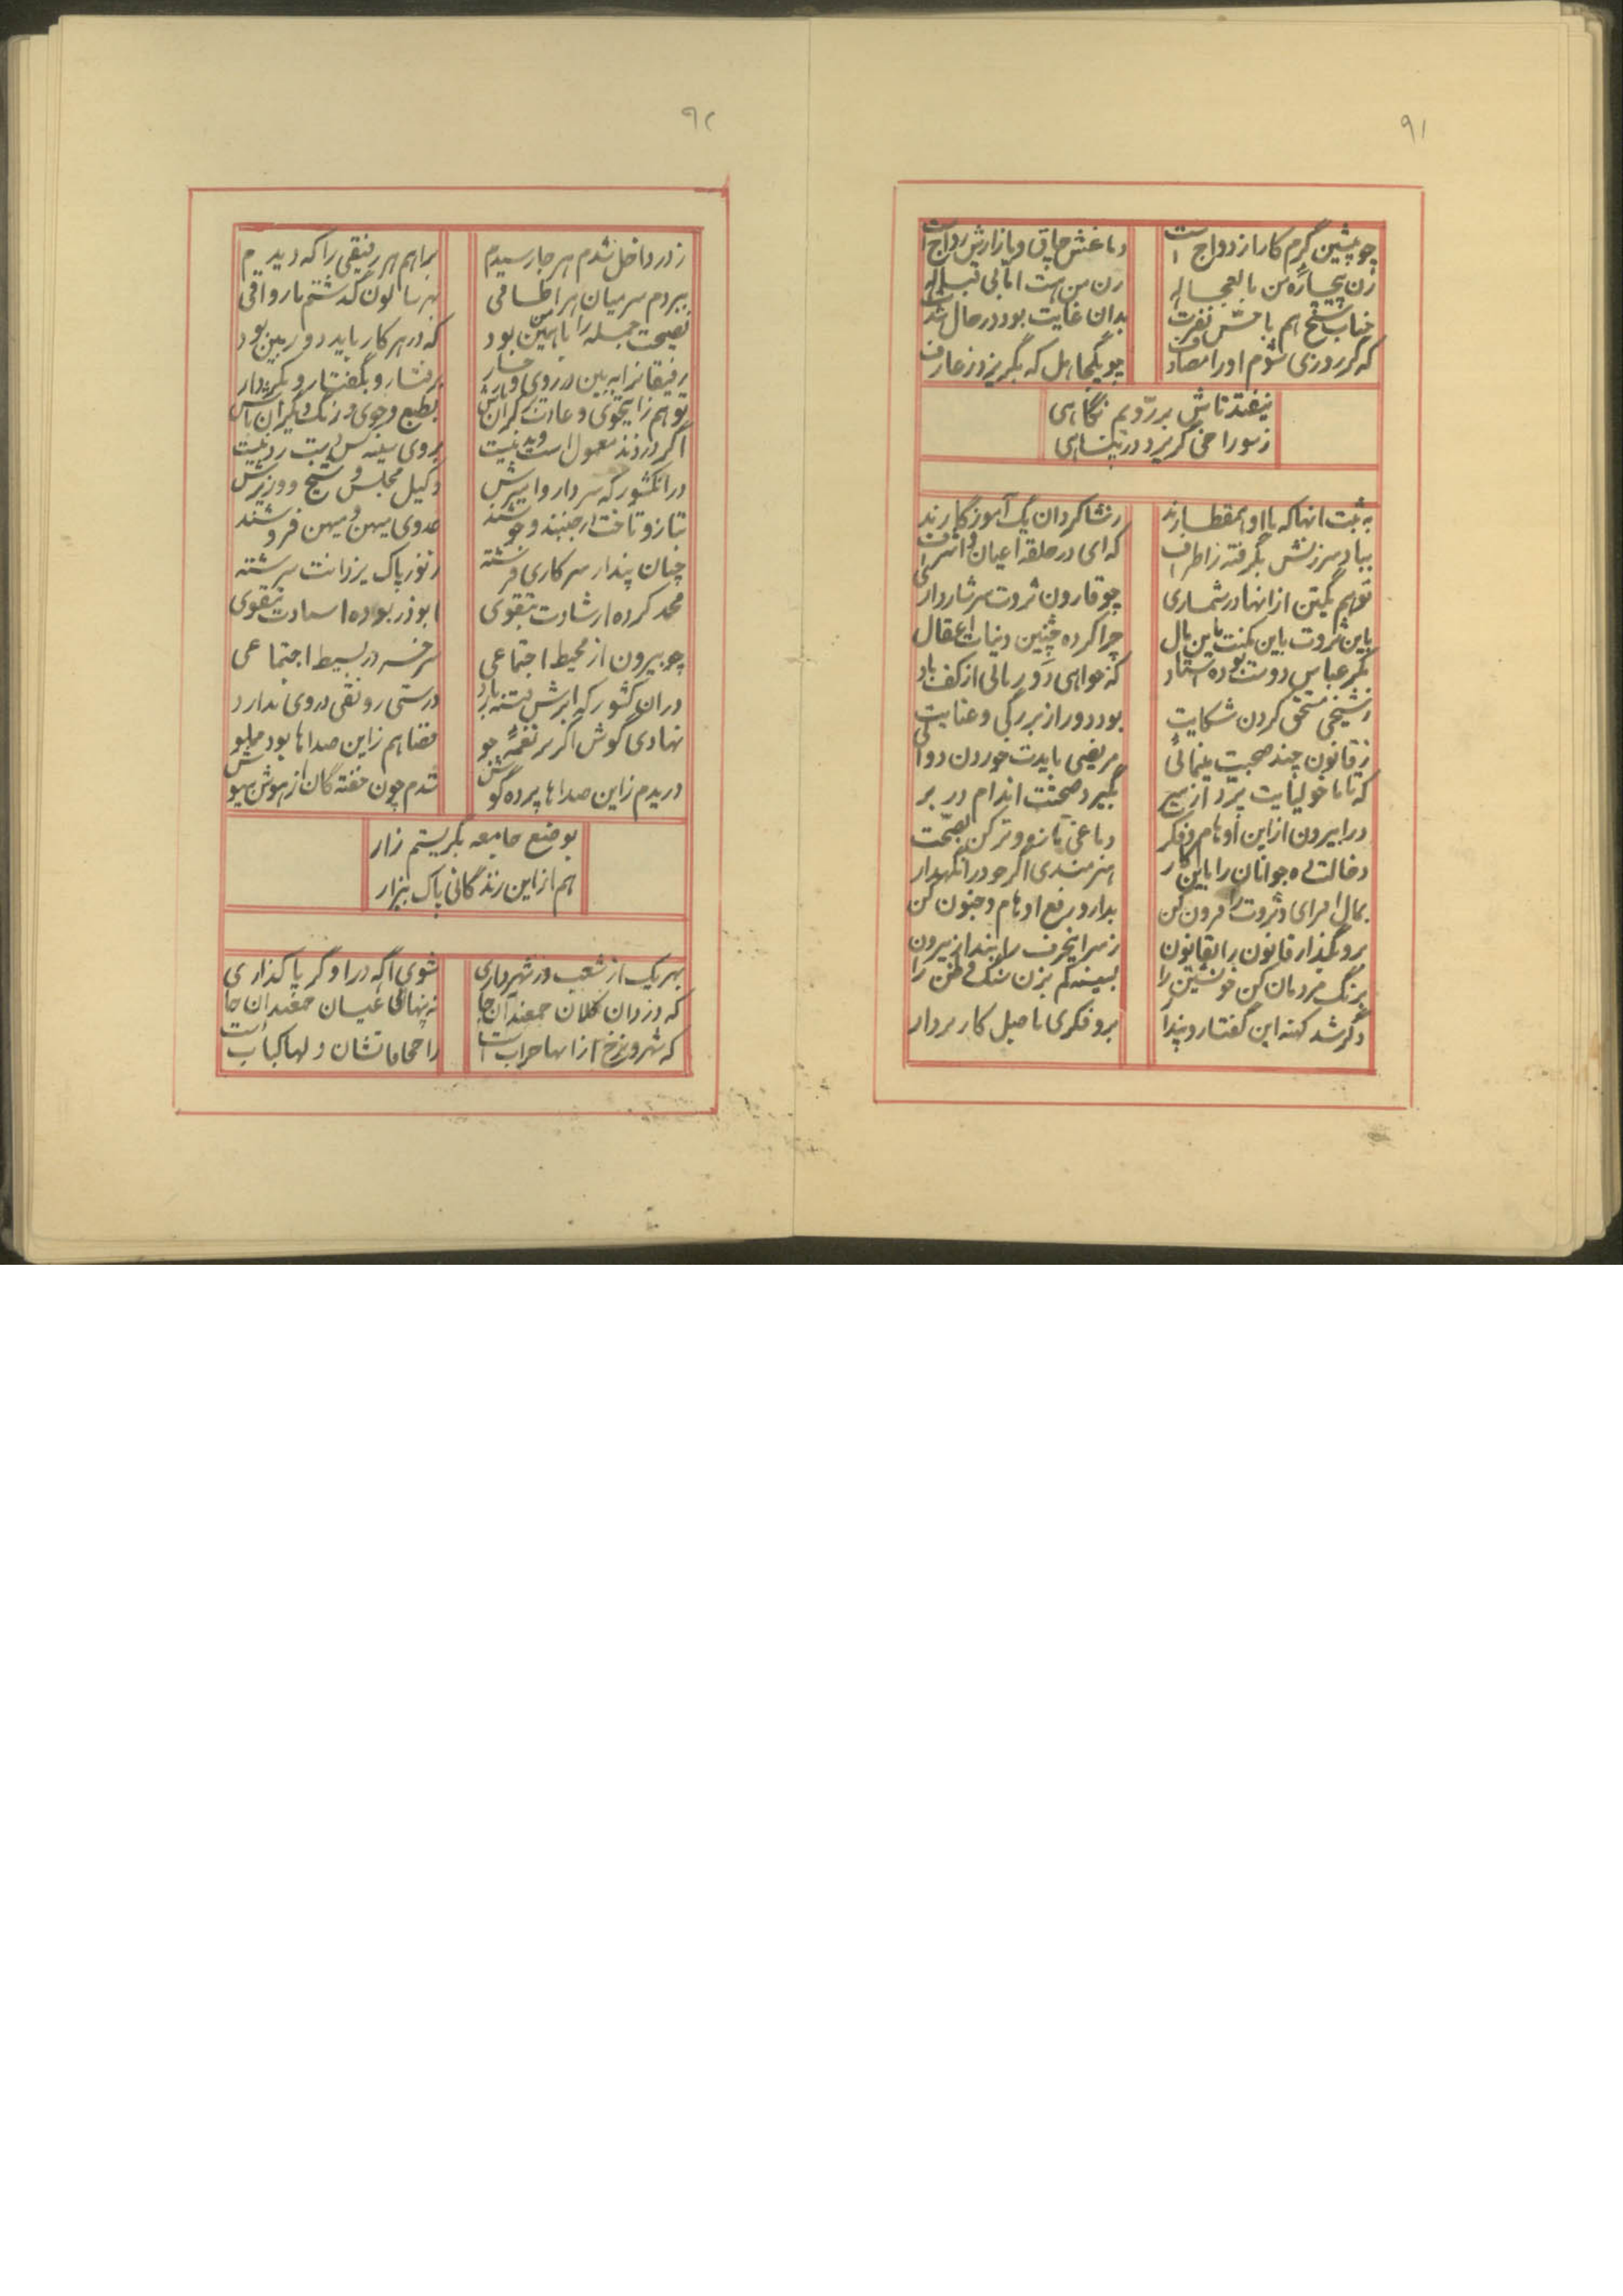 ۹۱
چو پیشین گرم کار ازدواج است
دماغش چاق و بازارش رواج است
زن بیچاره من با
زن من هست اما بی قباله
جناب شیخ هم با نفرت
بدان غایت بود در حال
که گر روزی شوم او را مصادف
چو یک جاهل که بگریزد ز عارف
نیفتد تاش بر رویم نگاهی
ز سوراخی گریزد در پناهی
به ثبت آنها که با او همقطارند
ز شاگردان یک آموزگارند
بباد سرزنش بگرفته ز اطراف
که ای در حلقه اعیان و اشراف
تو هم یکتن از آنها در شماری
چو قارون ثروت سرشار داری
باین ثروت باین مکنت باین مال
چرا کرده چنین دنیات اغفال
مگر عباس دوست بوده استاد
که خواهی دو ریالی از کف باد
ز شیخی مستحق کردن شکایت
بود دور از بزرگی و عنایت
ز قانون چند صحبت مینمائی
مریضی بایدت خوردن دوائی
که تا ماخولیایت پرد از سر
بگیرد صحتت اندام در بر
درا بیرون از این اوهام و فکرت
دماغی تازه و تر کن بصحت
دخالت ده جوانان را باین کار
هنرمندی اگر خود را نگهدار
بمال افزای و ثروت را فزون کن
بدارو رفع اوهام و جنون کن
برو بگذار قانون را بقانون
ز سر این حرف را بنداز بیرون
برنگ مردمان کن خویشتن را
بسینه کم بزن سنگ وطن را
دگر شد کهنه این گفتار و پندار
برو فکری باصل کار بردار
۹۲
ز در داخل شدم هر جا رسیدم
براهم هر رفیقی را که دیدم
ببردم سر میان هر اطاقی
بهر سالون گذشتم یا رواقی
نصیحت جمله را با من همین بود
که در هر کار باید دوربین بود
رفیقانرا ببین در روی و رخسار
برفتار و بگفتار و بکردار
تو هم زاینخوی و عادت بر کران باش
بطبع و خوی و رنگ دیگران باش
اگر دزدند معمول است و بد نیست
بروی سینه کس دست رد نیست
در انکشور که سردار و امیرش
وکیل مجلس و شیخ و وزیرش
بتاز و تاخت در جنبند و جوشند
عدوی میهن و میهن فروشند
چنان پندار سرکاری فرشته
ز نور پاک یزدانت سرشته
محمد کرده ارشادت بتقوی
ابوذر بوده استادت بتقوی
چو بیرون از محیط اجتماعی
سرخر در بسیط اجتماعی
در ان کشور که ابرش فتنه بارد
درستی رونقی در وی ندارد
نهادی گوش اگر بر نغمه جو
فضا هم زاین صداها بود مملو
دریدم زاین صداها پرده گوش
شدم چون خفته گان از هوش بیهوش
بوضع جامعه بگریستم زار
هم از این زندگانی پاک بیزار
بهر یک از شعب در شهرداری
شوی آگه در او گر پا گذاری
که دزدان کلان جمعند آن جا
نه پنهانی عیان جمعند ان جا
که شهر و برزخ از آنها خراب است
ز اجحافاتشان دلها کباب است